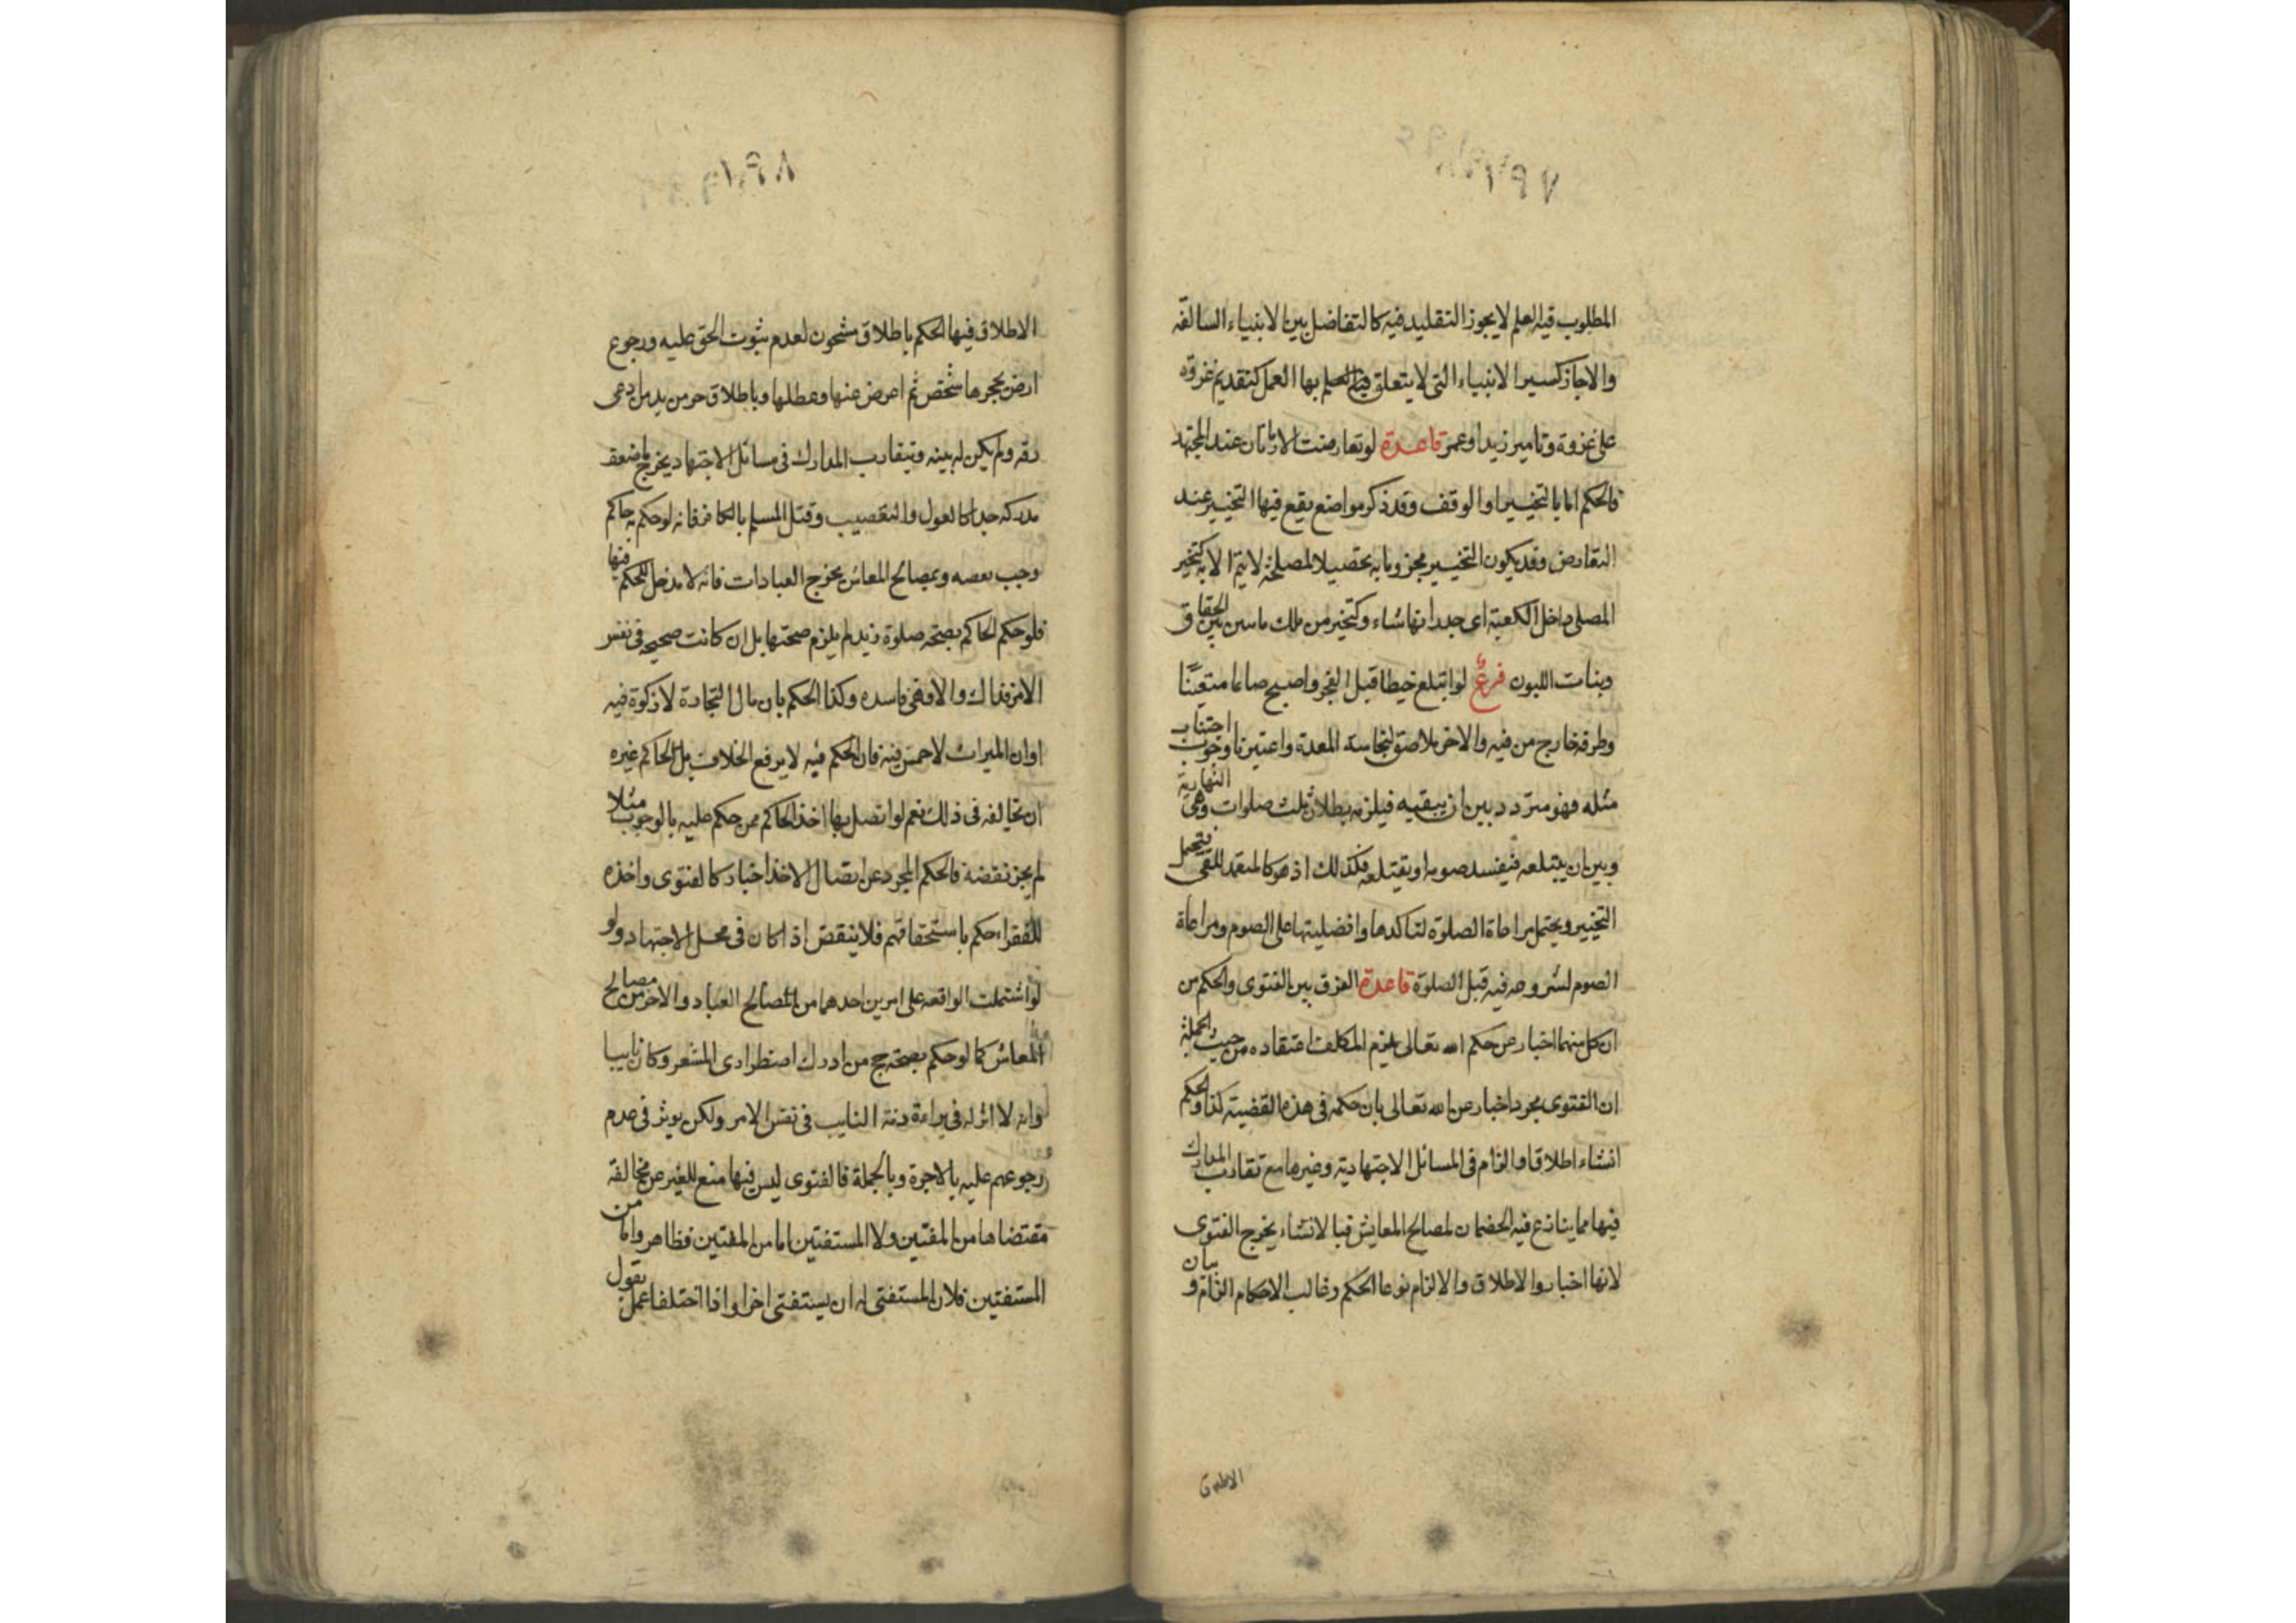 المطلوب فيه العلم لا يجوز التقليد فيه كالتفاضل بين الانبياء السالفة
والا جاز كسير الانبياء التى لا يتعلق فيها العلم بها العمل كتقديم غزوة
على غزوة وتامير زيد او عمر قاعدة لو تعارضت الامارتان عند المجتهد
فالحكم اما بالتخيير او الوقف وقد ذكر مواضع يقع فيها التخيير عند
التعارض وقد يكون التخيير مجزوما به تحصيلا لمصلحة لا يتم الا به كتخير
المصلى داخل الكعبة اى جدرانها شاء وكتخير من ملك ماسن بين الحقاق
وبنات اللبون فرع لو ابتلع خيطا قبل الفجر واصبح صائما متعينا
وطرفه خارج من فيه والاخر ملاصق لنجاسة المعدة واعتبرنا وجوب اجتناب
مثله فهو متردد بين ان يبقيه فيلزمه بطلان ثلث صلوات وهى النهارية
وبين ان يبتلعه فيفسد صومه او يقتلعه فكذلك اذ هو كالمتعمد للقى فيحتمل
التخيير ويحتمل مراعاة الصلوة لتاكدها وافضليتها على الصوم ومراعاة
الصوم لشروعه فيه قبل الصلوة قاعدة الفرق بين الفتوى والحكم من
ان كل منهما اخبار عن حكم الله تعالى يلزم المكلف اعتقاده من حيث الجملة
ان الفتوى مجرد اخبار عن الله تعالى بان حكمه فى هذه القضية كذا والحكم
انشاء اطلاق او الزام فى المسائل الاجتهادية وغيرها مع تقارب المدارك
فيها مما يتنازع فيه الخصمان لمصالح المعايش فبالانشاء يخرج الفتوى
لانها اخبار والاطلاق والالزام نوعا الحكم وغالب الاحكام الزام وبيان
الاطلاق
الاطلاق فيها الحكم باطلاق مسجون لعدم ثبوت الحق عليه ورجوع
ارض يحجرها شخص ثم اعرض عنها وعطلها وباطلاق حر من يد من ادعى
رقه ولم يكن له بينه وبتقارب المدارك فى مسائل الاجتهاد يخرج ما ضعف
مدركه جدا كالعول والتعصيب وقتل المسلم بالكافر فانه لو حكم به حاكم
وجب نقضه وبمصالح المعاش يخرج العبادات فانه لا مدخل للحكم فيها
فلو حكم الحاكم بصحة صلوة زيد لم يلزم صحتها بل ان كانت صحيحة فى نفس
الامر فذاك والا فهى فاسده وكذا الحكم بان مال التجارة لا زكوة فيه
او ان الميراث لا خمس فيه فان الحكم فيه لا يرفع الخلاف بل لحاكم غيره
ان يخالفه فى ذلك نعم لو اتصل بها اخذ الحاكم ممن حكم عليه بالوجوب مثلا
لم يجز نقضه فالحكم المجرد عن اتصال الاخذ اخبار كالفتوى واخذه
للفقراء حكم باستحقاقهم فلا ينقض اذا كان فى محل الاجتهاد ولو
لو اشتملت الواقعة على امرين احدهما من المصالح العباد والاخر من مصالح
المعاش كما لو حكم بصحة حج من ادرك اضطرارى المشعر وكان نايبا
وانه لا اثر له فى براءة ذمة النايب فى نفس الامر ولكن يوثر فى عدم
رجوعهم عليه بالاجرة وبالجملة فالفتوى ليس فيها منع للغير عن مخالفة
مقتضاها من المفتين ولا المستفتين اما من المفتين فظاهر واما من
المستفتين فلان المستفتى له ان يستفتى اخر واذا اختلفا عمل بقول